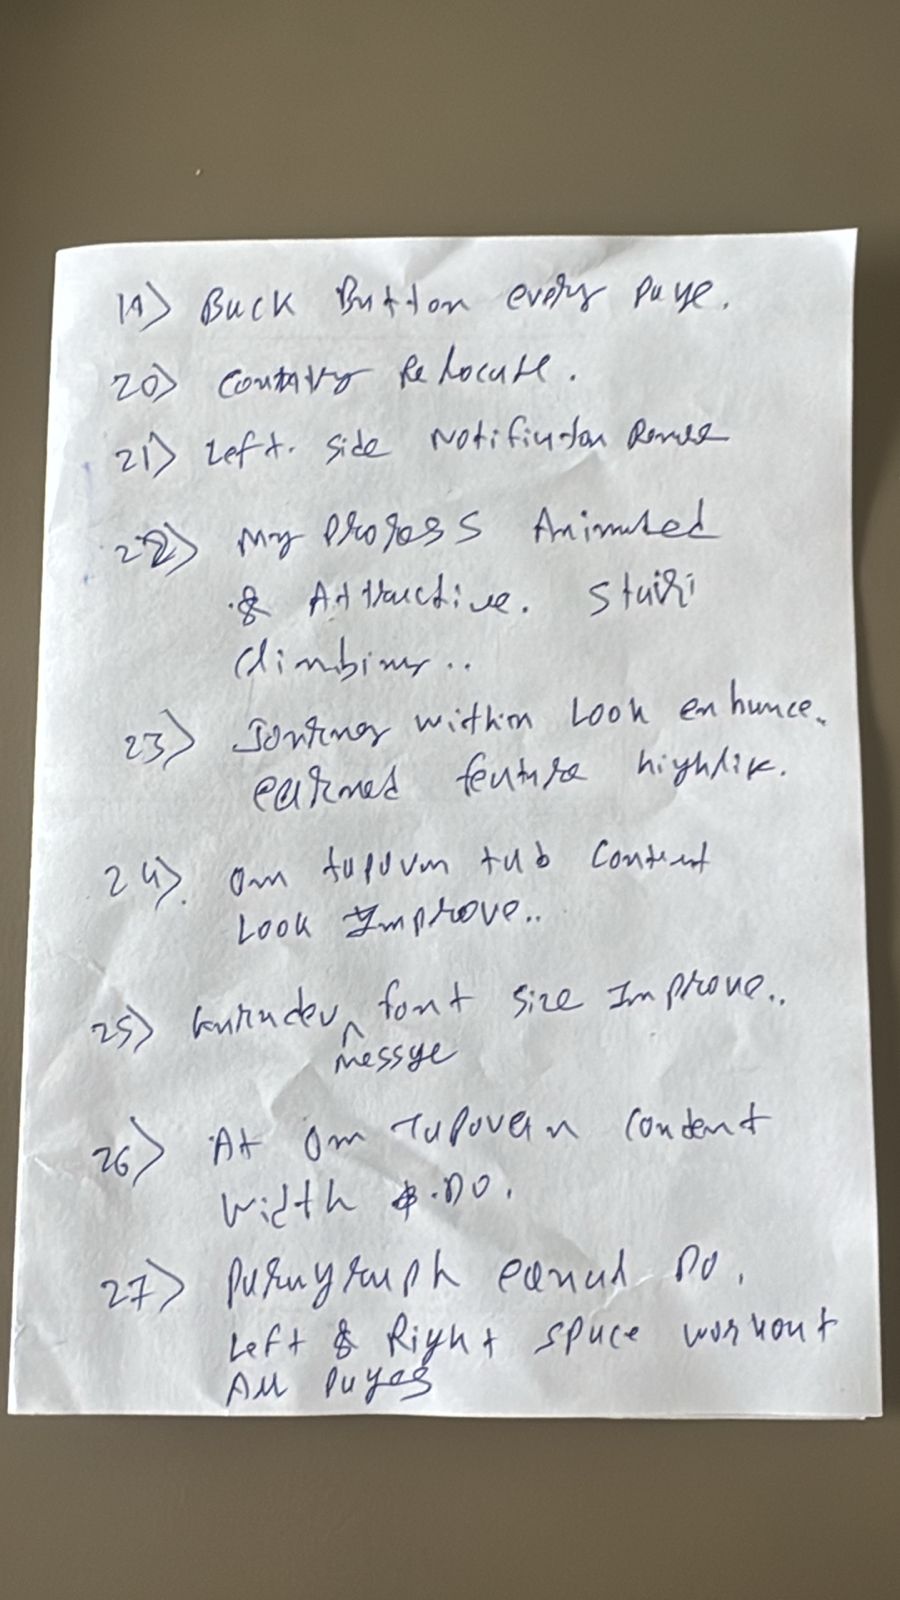 19) Back Button every page.
20) Country Relocate.
21) Left. side Notification Remove
22) My Progess Animated
& Attractive. Stair
Climbing..
23) Journey within Look enhance.
earned feature highlik.
24). Om tapovan tab Content
Look Improve..
25) Gurudev font size Improve..
messge
26) At Om Tapovan Content
Width DO.
27) Paragraph equal DO.
Left & Right space workout
All pages